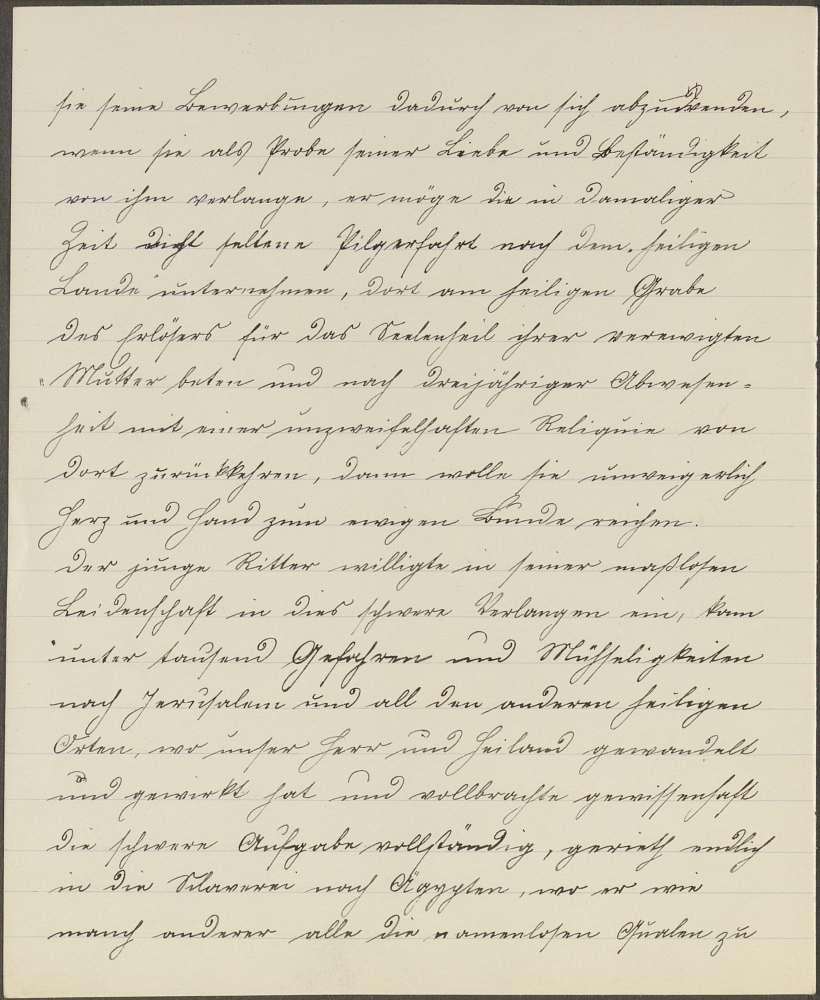 sie seine Bewerbungen dadurch von sich abzuwenden,
wenn sie als Probe seiner Liebe und Beständigkeit
von ihm verlange, er möge die in damaliger
Zeit nicht seltene Pilgerfahrt nach dem heiligen
Lande unternehmen, dort am heiligen Grabe
des Erlösers für das Seelenheil ihrer verewigten
Mutter beten und nach dreijähriger Abwesen-
heit mit einer unzweifelhaften Reliquie von
dort zurückkehren, dann wolle sie unweigerlich
Herz und Hand zum ewigen Bunde reichen.
Der junge Ritter willigte in seiner maßlosen
Leidenschaft in dies schwere Verlangen ein, kam
unter tausend Gefahren und Mühseligkeiten
nach Jerusalem und all den anderen heiligen
Orten, wo unser Herr und Heiland gewandelt
und gewirkt hat und vollbrachte gewissenhaft
die schwere Aufgabe vollständig, gerieth endlich
in die Sclaverei nach Ägypten, wo er wie
manch anderer alle die namenlosen Qualen zu